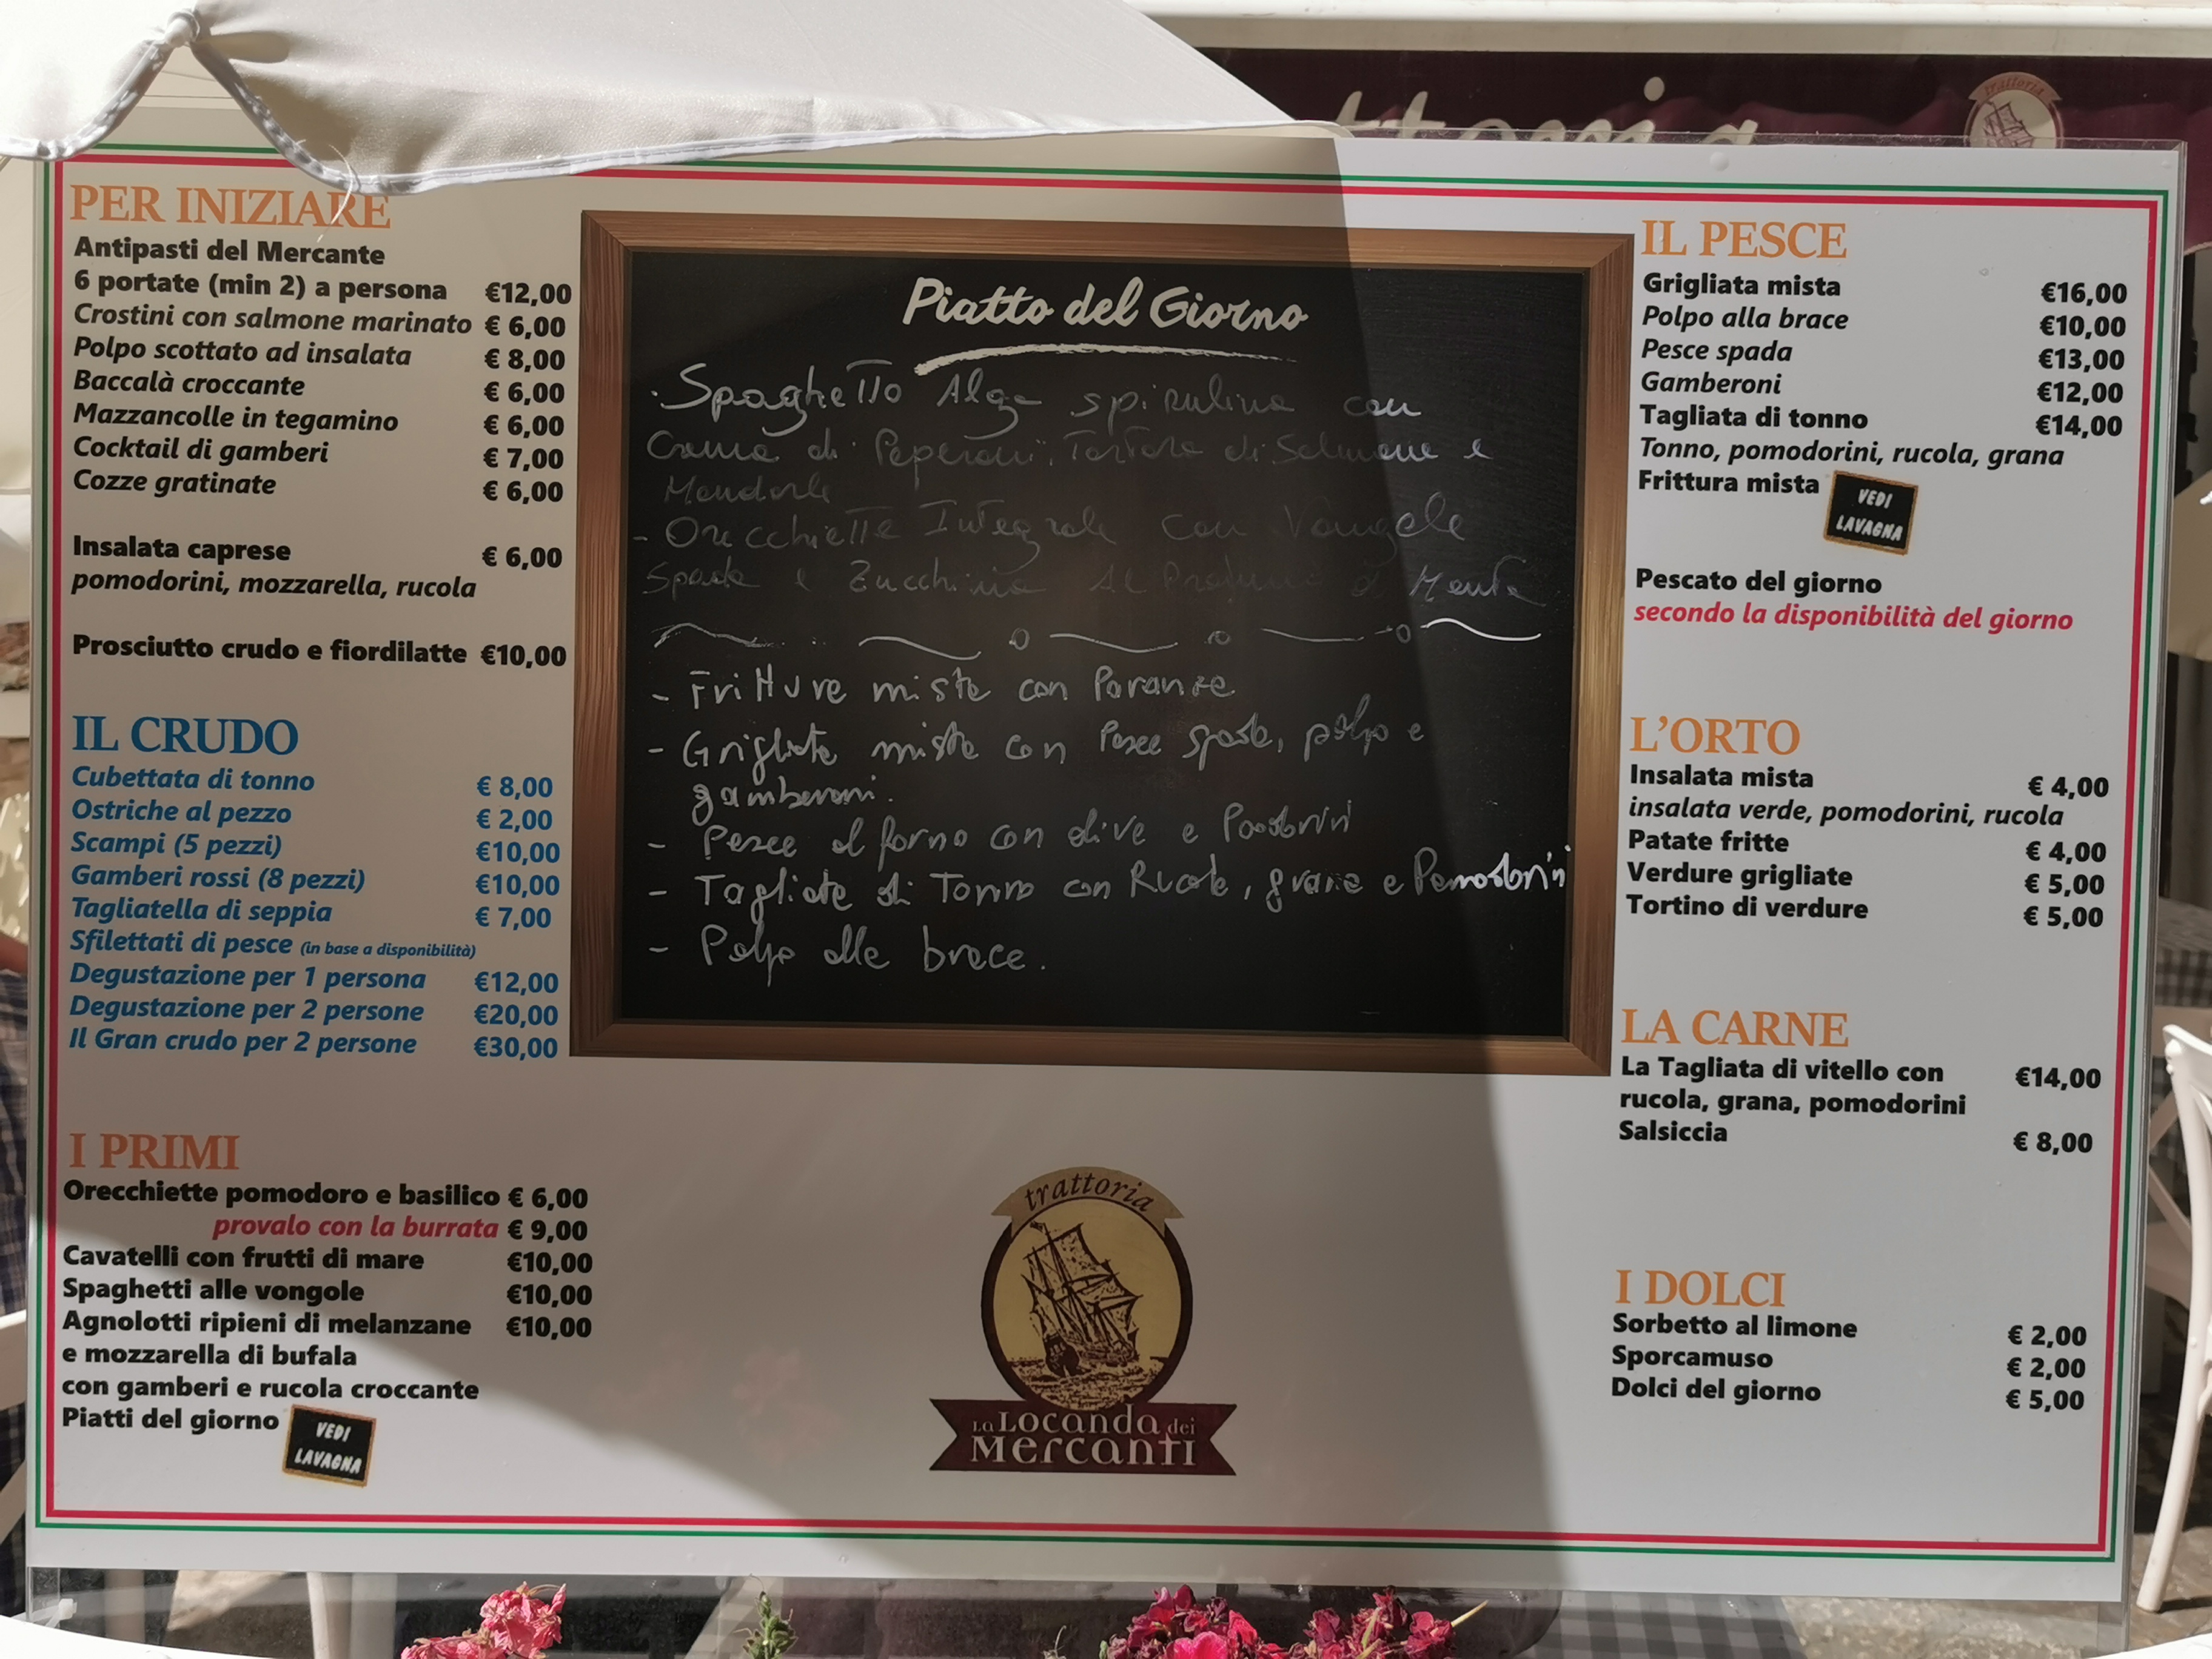 PER INIZIARE
Antipasti del Mercante
6 portate (min 2) a persona €12,00
Crostini con salmone marinato € 6,00
Polpo scottato ad insalata € 8,00
Baccalà croccante € 6,00
Mazzancolle in tegamino € 6,00
Cocktail di gamberi € 7,00
Cozze gratinate € 6,00
Insalata caprese € 6,00
pomodorini, mozzarella, rucola
Prosciutto crudo e fiordilatte €10,00
IL CRUDO
Cubettata di tonno € 8,00
Ostriche al pezzo € 2,00
Scampi (5 pezzi) €10,00
Gamberi rossi (8 pezzi) €10,00
Tagliatella di seppia € 7,00
Sfilettati di pesce (in base a disponibilità)
Degustazione per 1 persona €12,00
Degustazione per 2 persone €20,00
Il Gran crudo per 2 persone €30,00
I PRIMI
Orecchiette pomodoro e basilico € 6,00
provalo con la burrata € 9,00
Cavatelli con frutti di mare €10,00
Spaghetti alle vongole €10,00
Agnolotti ripieni di melanzane €10,00
e mozzarella di bufala
con gamberi e rucola croccante
Piatti del giorno VEDI
LAVAGNA
Piatto del Giorno
· Spaghetto Alga spirulina con
Crema di Peperoni, Tartare di Salmone e
Mandorle
- Orecchiette Integrali con Vongole
Spada e Zucchine Al Profumo di Menta
- Fritture miste con Paranze
- Grigliate miste con Pesce spada, polpo e
gamberoni.
- Pesce al forno con olive e
- Tagliate di Tonno con Rucola, grana e Pomodorini
- Polpo alle brace.
trattoria
La Locanda dei
Mercanti
ttoria
trattoria
IL PESCE
Grigliata mista €16,00
Polpo alla brace €10,00
Pesce spada €13,00
Gamberoni €12,00
Tagliata di tonno €14,00
Tonno, pomodorini, rucola, grana
Frittura mista VEDI
LAVAGNA
Pescato del giorno
secondo la disponibilità del giorno
L'ORTO
Insalata mista € 4,00
insalata verde, pomodorini, rucola
Patate fritte € 4,00
Verdure grigliate € 5,00
Tortino di verdure € 5,00
LA CARNE
La Tagliata di vitello con €14,00
rucola, grana, pomodorini
Salsiccia € 8,00
I DOLCI
Sorbetto al limone € 2,00
Sporcamuso € 2,00
Dolci del giorno € 5,00